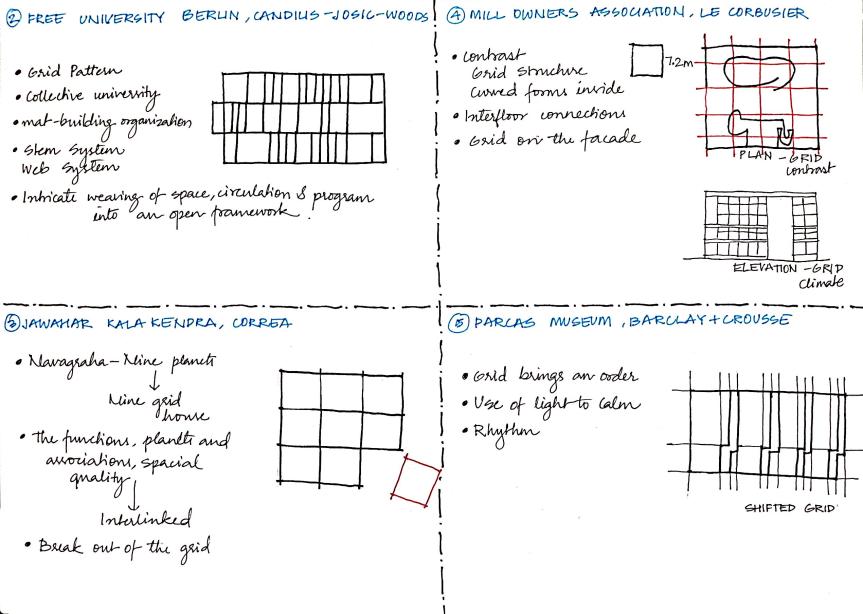 ② FREE UNIVERSITY BERLIN, CANDILIS-JOSIC-WOODS
• Grid Pattern
• Collective university
• mat-building organization
• Stem System
Web System
• Intricate weaving of space, circulation & program
into an open framework.
④ MILL OWNERS ASSOCIATION, LE CORBUSIER
• Contrast
Grid Structure
Curved forms inside
• Interfloor connections
• Grid on the facade
7.2m
PLAN - GRID
Contrast
ELEVATION - GRID
Climate
③ JAWAHAR KALA KENDRA, CORREA
• Navagraha - Nine planets
Nine grid
house
• The functions, planets and
associations, spacial
quality
Interlinked
• Break out of the grid
⑤ PARCAS MUSEUM, BARCLAY+CROUSSE
• Grid brings an order
• Use of light to Calm
• Rhythm
SHIFTED GRID